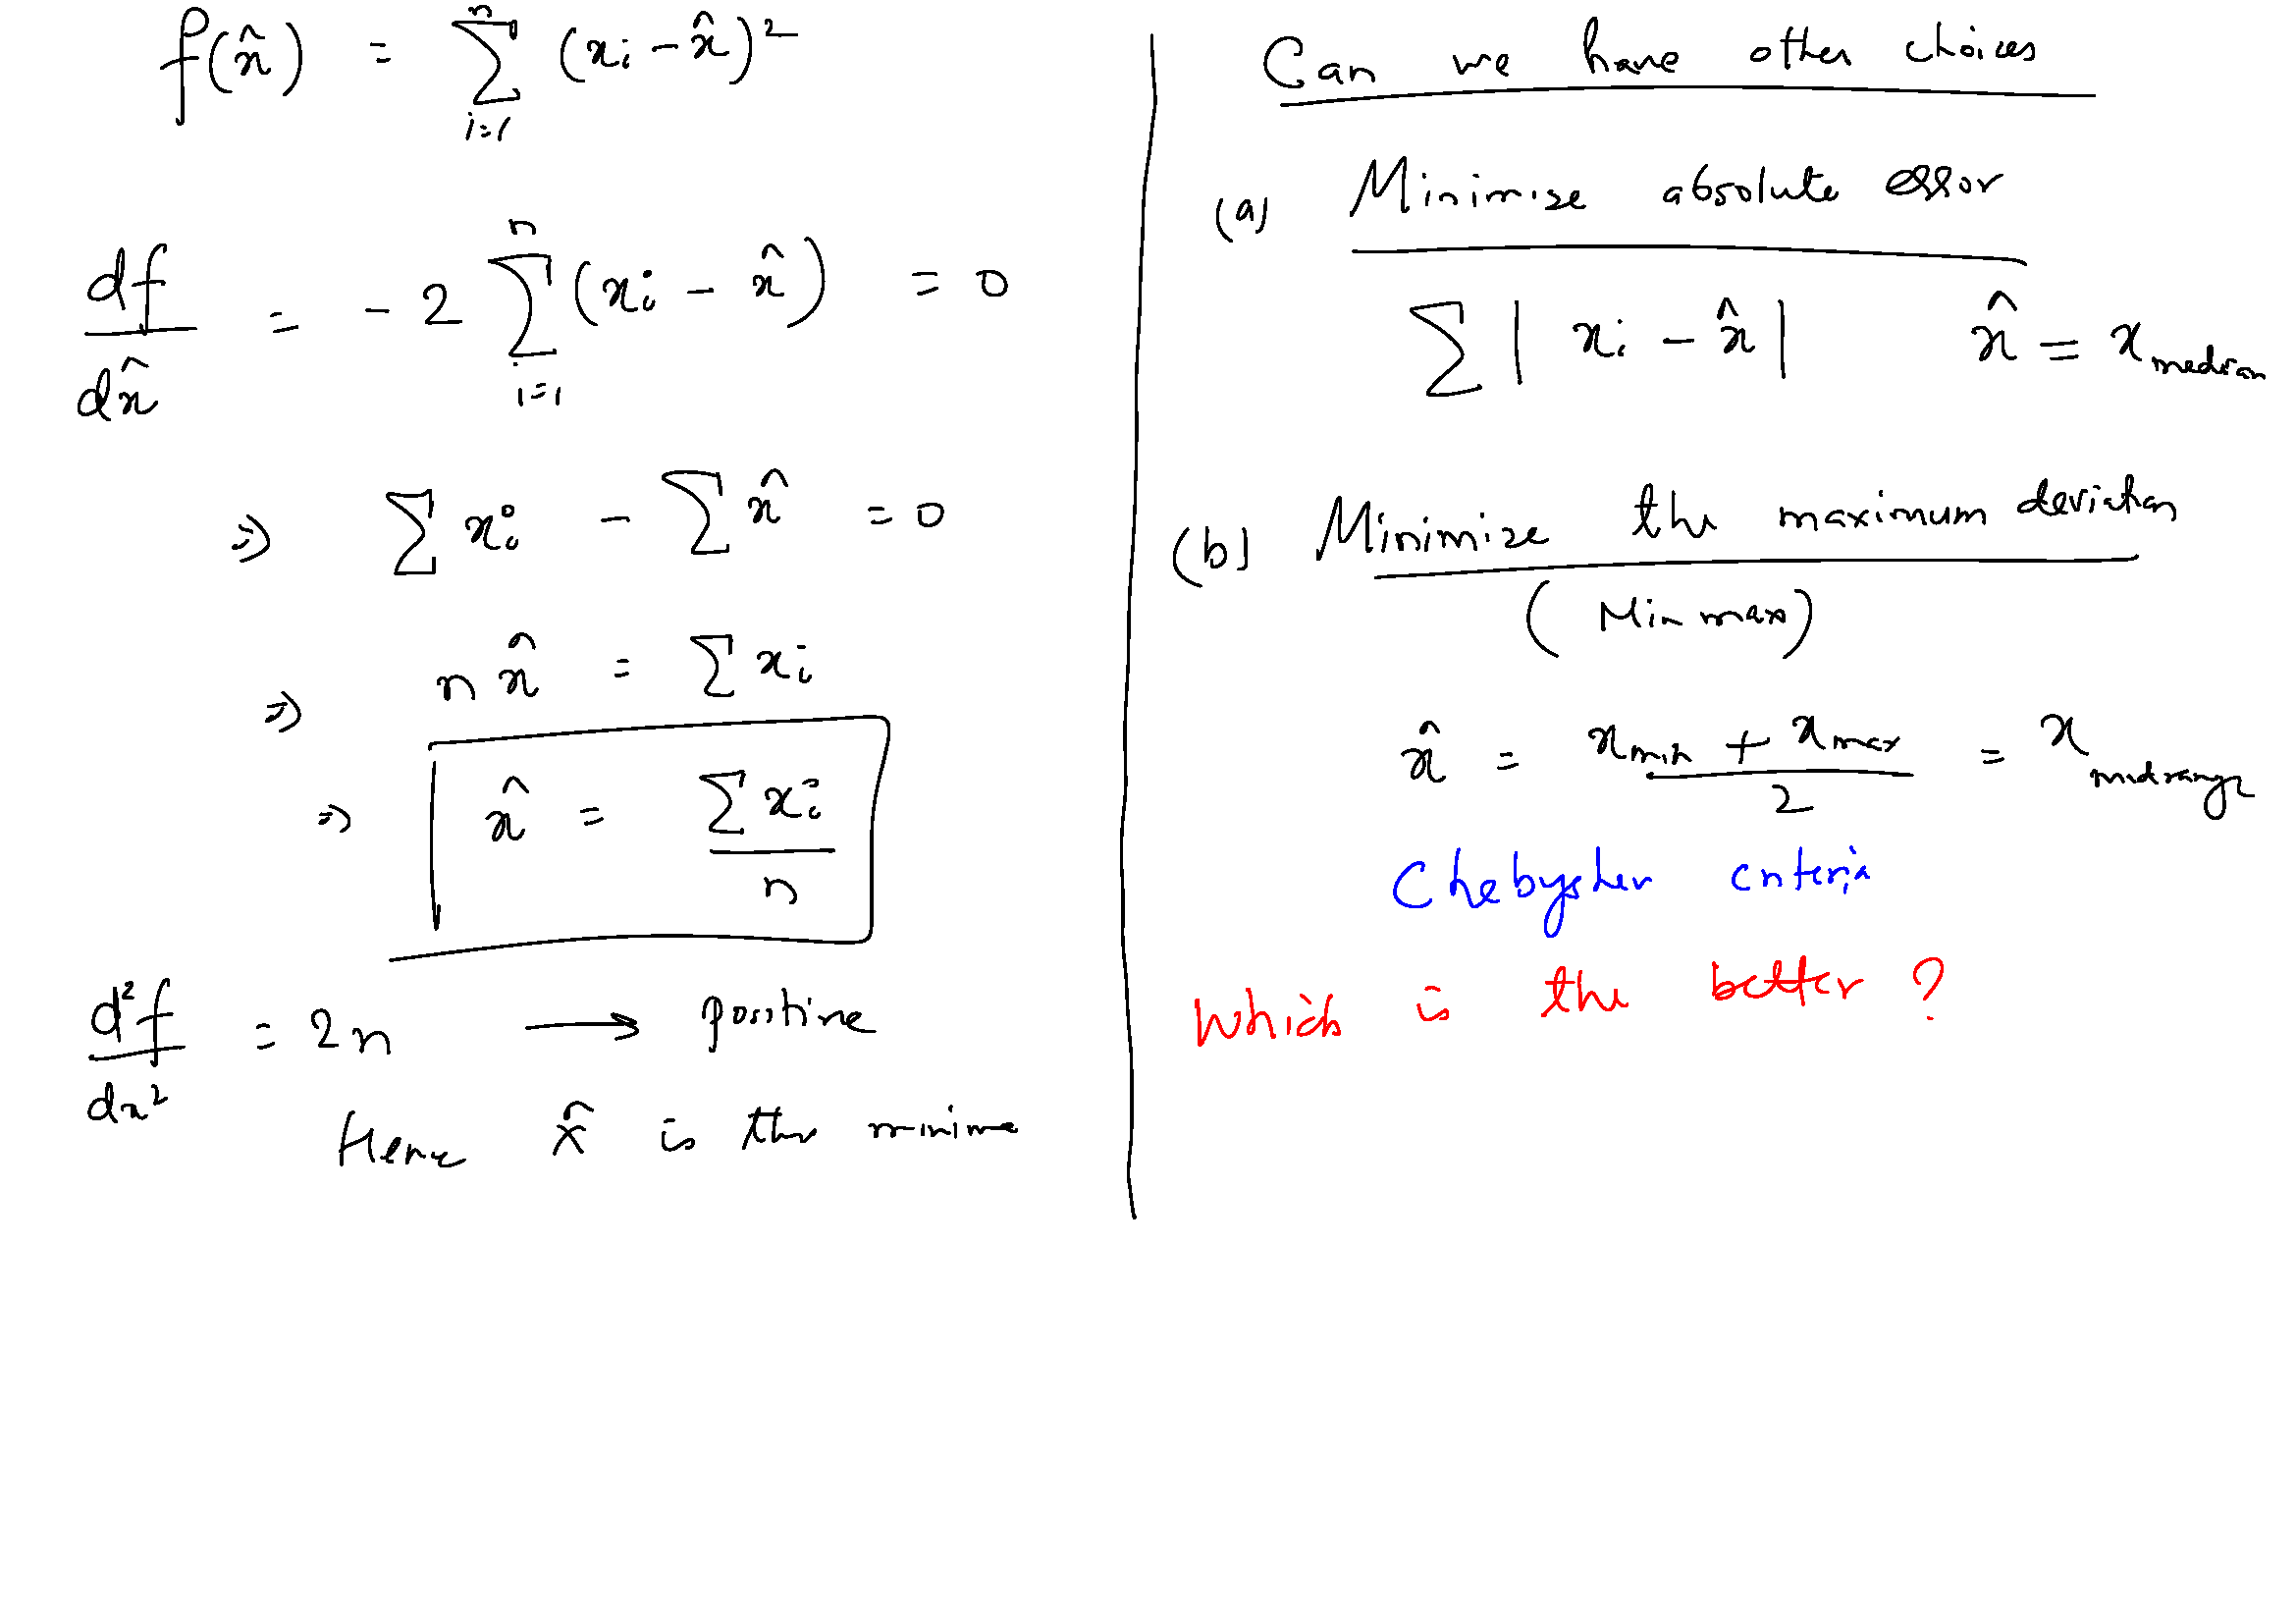 f(x̂) = Σ_{i=1}^{n} (x_i - x̂)²
df/dx̂ = -2 Σ_{i=1}^{n} (x_i - x̂) = 0
⇒ Σ x_i - Σ x̂ = 0
⇒ n x̂ = Σ x_i
⇒ x̂ = Σ x_i / n
d²f/dx² = 2n → positive
Hence x̂ is the minima
Can we have other choices
(a) Minimise absolute error
Σ | x_i - x̂ | x̂ = x_median
(b) Minimize the maximum deviation
(Minmax)
x̂ = (x_min + x_max)/2 = x_midrange
Chebyshev criteria
Which is the better ?